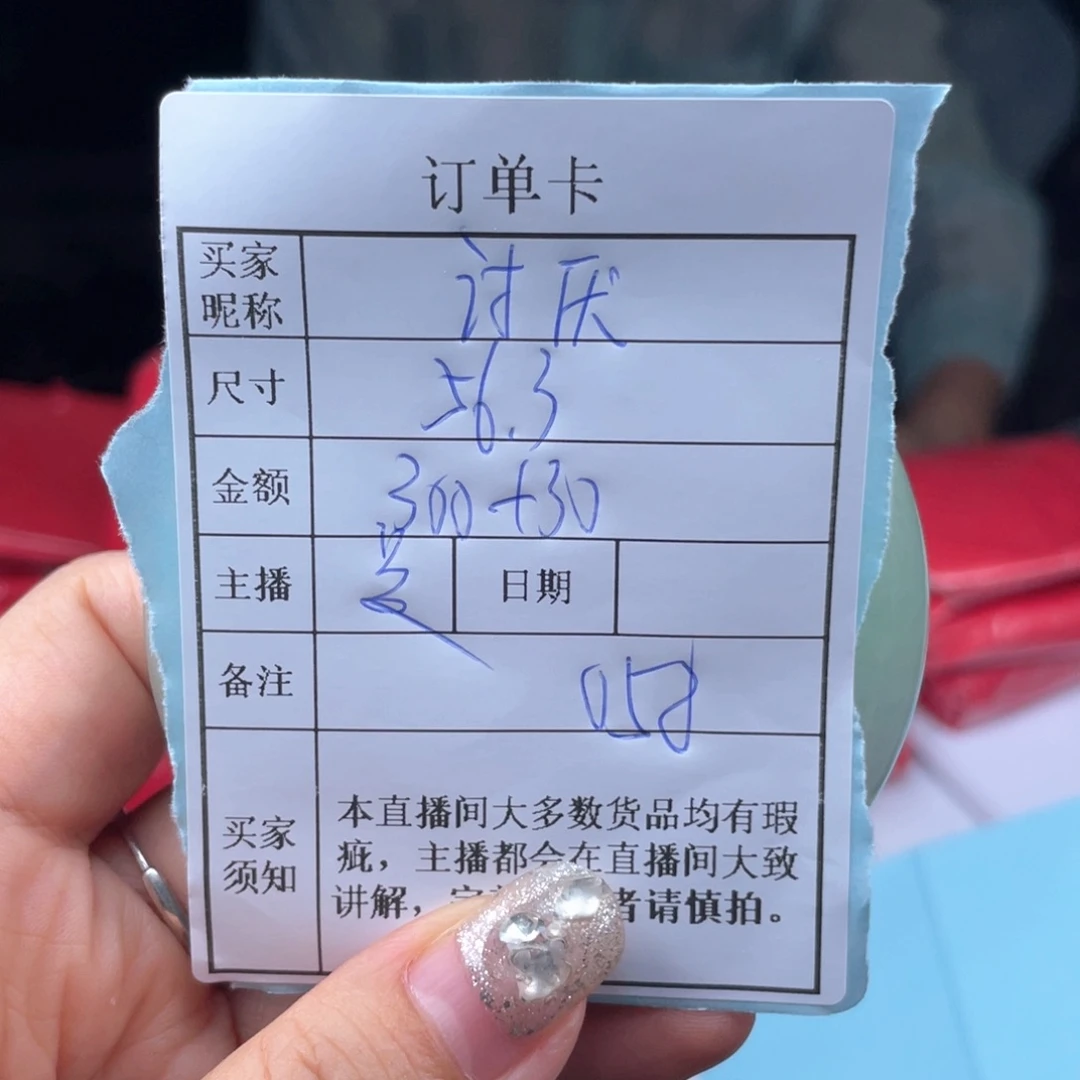 订单卡
买家昵称 讨厌
尺寸 56.3
金额 300+30
主播 日期
备注
买家须知
本直播间大多数货品均有瑕
疵，主播都会在直播间大致
讲解，者请慎拍。